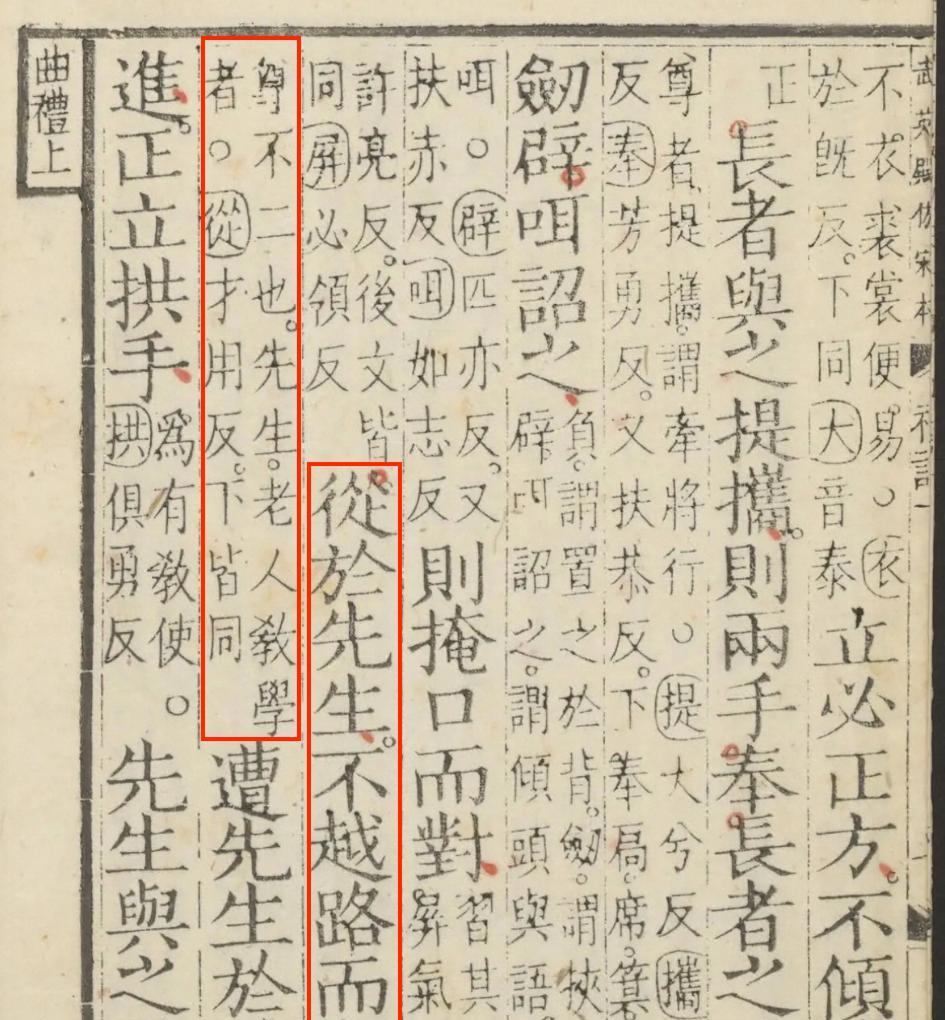 武英殿仿宋本 禮記一
不衣裘裳便易。○衣
於旣反。下同大音泰
立必正方。不傾
正
長者與之提攜。則兩手奉長者之
尊者提攜。謂牽將行○提大兮反攜
反奉芳勇反。又扶恭反。下奉扃。席。箕
劒辟咡詔之
負。謂置之於背。劒。謂挾
辟咡詔之。謂傾頭與語。
咡○辟匹亦反。又
扶赤反咡如志反
則掩口而對。
習其
屏氣
許亮反。後文皆
同屏必領反
從於先生。不越路而
尊不二也。先生。老人敎學
者○從才用反。下皆同
遭先生於
進。正立拱手
爲有敎使○
拱俱勇反
先生與之
曲禮上